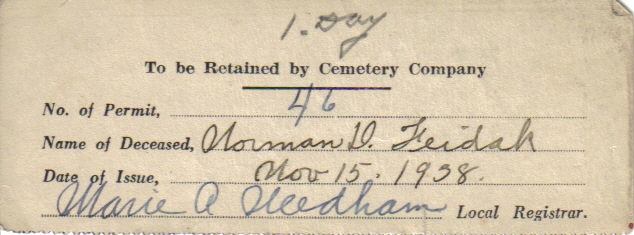 1. Day
To be Retained by Cemetery Company
No. of Permit, 46
Name of Deceased, Norman D. Feidak
Date of Issue, Nov 15. 1938.
Marie A Needham Local Registrar.